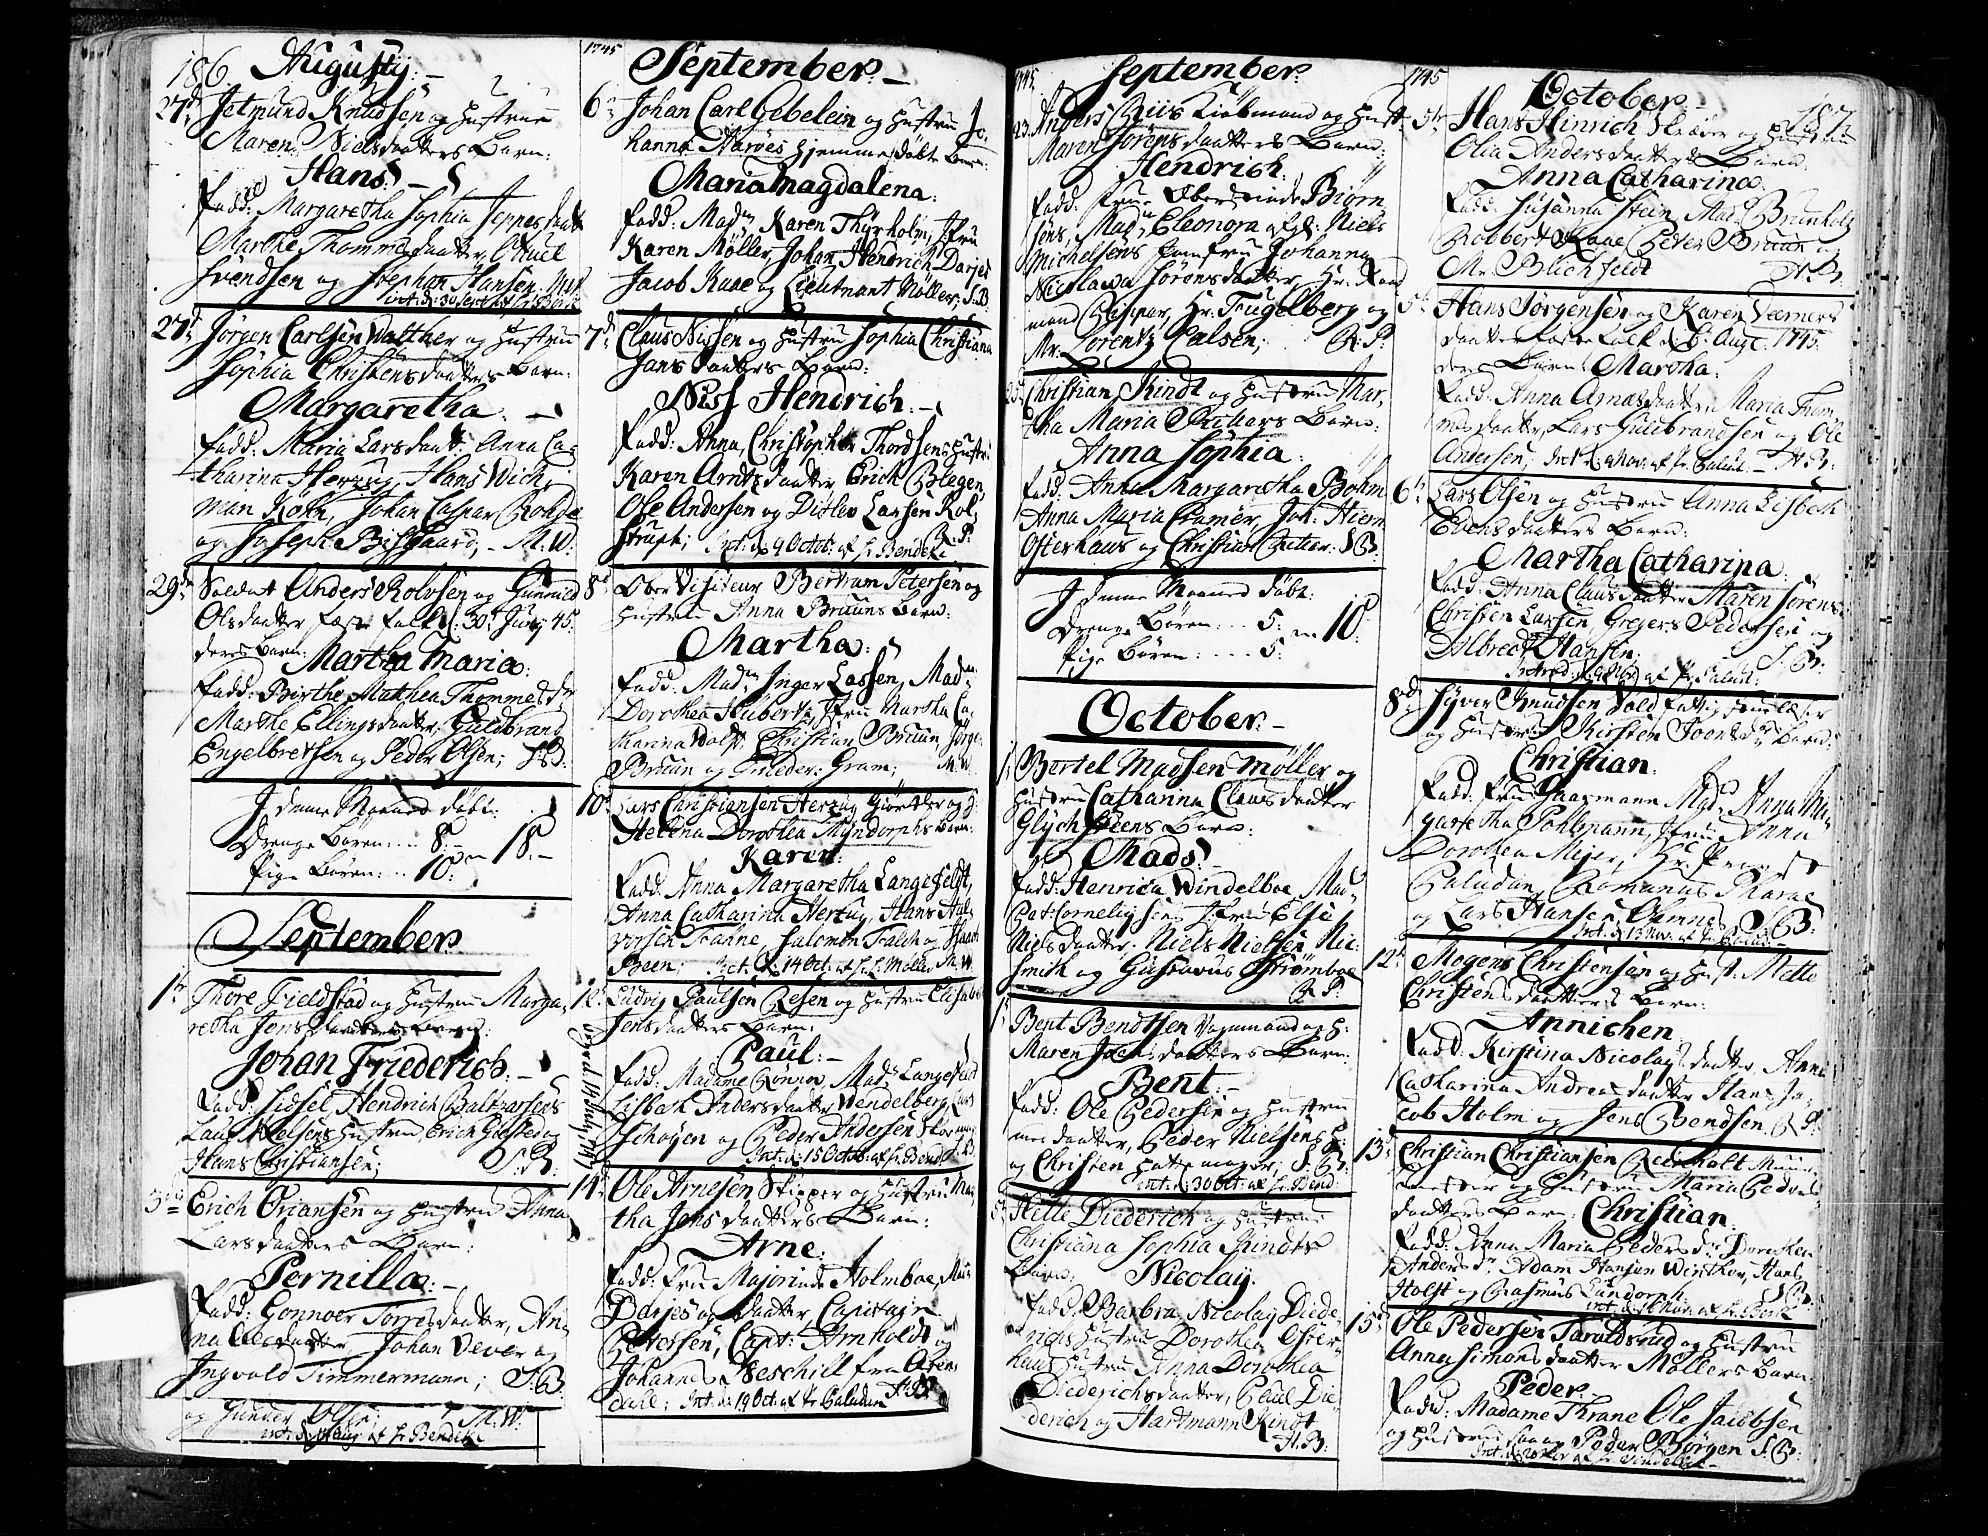 186.
Augusty:
27d Jetmund Knudsen og Hustrue
Maren Nielsdaatters Barn:
Hans:
Fadd: Margaretha Sophia Jeppesdaatt
Marthe Thommesdaatter,
Svendsen og Stephan Hansen.
27d Jørgen Carlsen Walther og Hustru
Sophia Christensdaatters Barn:
Margaretha:
Fadd: Maria Larsdaatt: Anna Ca-
tharina Herzug, Hans Wich,
man Køhn, Johan Caspar Rohde
og Joseph Bisgaard, M: W:
29de Soldat Anders Rolvsen og Gunnild
Olsdaatter 30t Juny 45.
deres Barn: Martha Maria:
Fadd: Birthe Mathea Thommesdr
Marthe Ellingsdaatter, Guldbrand
Engelbretsen og Peder Olsen;
I denne Maaned døbt:
Drenge Børen: 8: 18:
Pige Børen: 10:
September
1te Thore Fieldstad og Hustrue Marga-
retha Jensdaatters Barn:
Johan Friederich:
Fadd: Sidsel Hendrich Baltzarsens
Laur: Nielsens Hustrue Erich Giested og
Hans Christiansen; S: B:
3die Erich Ørjansen og Hustrue Anna
Larsdaatters Barn:
Pernilla:
Fadd: Gonnoer Torresdaatter, An-
na Olesdaatter, Johan Vever og
Ingvold Timmermann; S: B:
og Gunder Olsen; M: W:
1745 September
6te Johan Carl Gebelein og Hustru Jo-
hanna Harboes Hjemmedøbt Barn:
Maria Magdalena:
Fadd: Madm Karen Thyrholm, Jfru
Karen Møller, Johan Hendrich Darjes
Jacob Kaae og Lieutnant Møller; S: B
7d Claus Nissen og Hustru Sophia Christiana
Jansdaatters Barn:
Niss Hendrich:
Fadd: Anna, Christopher Thordsens Hustr:
Karen Arntzdaatter, Erich Blegen,
Ole Andersen og Ditlev Larsen Kol-
strupt; Int: d: 9 Octob: af Hr Bendeke R: P:
8d Ober Visiteur Bertram Petersen og
Hustrue Anna Bruuns Barn:
Martha:
Fadd: Madm Inger Lassen, Madm
Dorothea Hubertz, Jfru Martha Ca-
tharina Wolf, Christian Bruun Jørgen
Bruun og Frieder: Gram; M: W:
10d Lars Christiansen Herzug Giørtler og H:
Helena Dorothea Myndorphs Barn:
Karen:
Fadd: Anna Margaretha Langefeldt,
Anna Catharina Herzug, Hans Hal-
vorsen Trahne, Salomon Tralch og Isaach
Been; Int: d: 14 Oct: af Hr L: Møller M: W:
12d Ludvig Paulsen Resen og Hustrue Elisabet
Jensdaatters Barn:
Paul:
Fadd: Madame Rønnov, Madm Langefeldt
Lisbeth Andersdaatter Wendelberg, Lars
Schøyen og Peder Andersen Skoemag:
Int: d: 15 Octob: af Hr Bend: S: B:
14d Ole Arnesen Skipper og Hustru Mar-
tha Jensdaatters Barn:
Arne:
Fadd: Fru Majorinde Holmboe, Mad:
Darjes og Daatter, Capitain
Petersen, Capt: Arnholdt og
Johannes Neschill fra Aren-
dahl; Int: d: 19 Oct: af Hr Paludan H: B:
1745. September:
23. Anders Riis Kiøbmand og Hust-
Maren Sørensdaatters Barn:
Hendrich:
Fadd: Frue Oberstinde Biørn
sens, Madm Eleonora Niels
Michelsens Jomfru Johanna
Nicolava Sørensdaatter, Hr: Raad
mand Risper, Hr: Fugelberg og
Mr: Lorentz Palsen; R: P:
23d Christian Kindt og Hustrue Mar-
tha Maria Richers Barn:
Anna Sophia:
Fadd: Anna Margaretha Bøhm
Anna Maria Cramer, Joh: Hierm
Osterhaus og Christian Richer. S: B:
I denne Maaned døbt:
Drenge Børen: 5: 10:
Pige Børen: 5:
October
1te Bertel Madsen Møller og
Hustru Catharina Clausdaatter
Glychsteens Barn:
Mads:
Fadd: Henrica Windelboe, Madm
Cornelijsens Jfrue Else
Nielsdaatter, Niels Nielsen Nic:
Smith og Gustavus Strømboe
R: P:
1te Bent Bendtsen Vognmand og H:
Maren Jochensdaatters Barn.
Bent:
Fadd: Ole Pedersen og Hustru
daatter, Peder Nielsens H:
og Christen Hattemager; S: B:
int: d: 30 Oct: af Hr Bend:
5te Helle Diederich og Hustrue
Christiana Sophia Kindts
Barn: Nicolay:
Fadd: Barbra, Nicolay Diede-
richs Hustru Dorothea Oster-
haus Hustru Anna Dorothea
Diederichsdaatter, Paul Die-
derich og Hartmann Kindt
H: B:
1745 October 187.
5te Hans Hinrich Skræder og Hustru
Olia Andersdaatters Barn
Anna Catharina:
Fadd: Susanna Stein, Madm Brunholtz
Robbert Kaae Peter Bruun og
Mr Blichfeldt H: B:
5te Hans Jørgensen og Karen Verners
daatter 6 Augt. 1745.
deres Barn: Martha:
Fadd: Anna Arnesdaatter Maria Thom-
mesdaatter, Lars Guldbrandsen og Ole
Andersen; Int: d: 9 Nov: af Hr Palud: H: B:
6te Lars Olsen og Hustrue Anna Lisbeth
Evensdaatters Barn:
Martha Catharina:
Fadd: Anna Clausdaatter Maren Sørens
Christen Larsen, Gregers Pedersen og
Albrect Hansen: S: B:
8de Syver Knudsen Vold
og Hustru Kirsten Toensdr Barn:
Christian:
Fadd: Frue Haagmann, Madm Anna Mar-
garetha Pohlmann, Jfru Anna
Dorothea Meyer, Hr: Provst
Paludan, Romanus Pharoe
og Lars Hansen Øhmne S: B:
Int: d: 13 Nov: af Hr Palud:
12te Mogens Christensen og Hust: Mette
Christensdaatters Barn:
Annichen
Fadd: Kirstina Nicolaysdaatter Anne
Catharina Andreasdaatter Hans Ja-
cob Holm og Jens Svendsen. R: P:
13d Christian Christiansen Reinholt Muur-
mester og Hustru Maria Peders
daatters Barn: Christian:
Fadd: Anna Maria Pedersdr Dorothea
Andersdr Adam Hansen Winther, Hans
Holst og Rasmus Lundorph. S: B:
15d Ole Pedersen Taraldsrud og Hustru
Anna Simonsdaatter Møllers Barn
Peder:
Fadd: Madame Thrane Ole Jacobsen
og Hustrue samt Peder Børgen S: B: